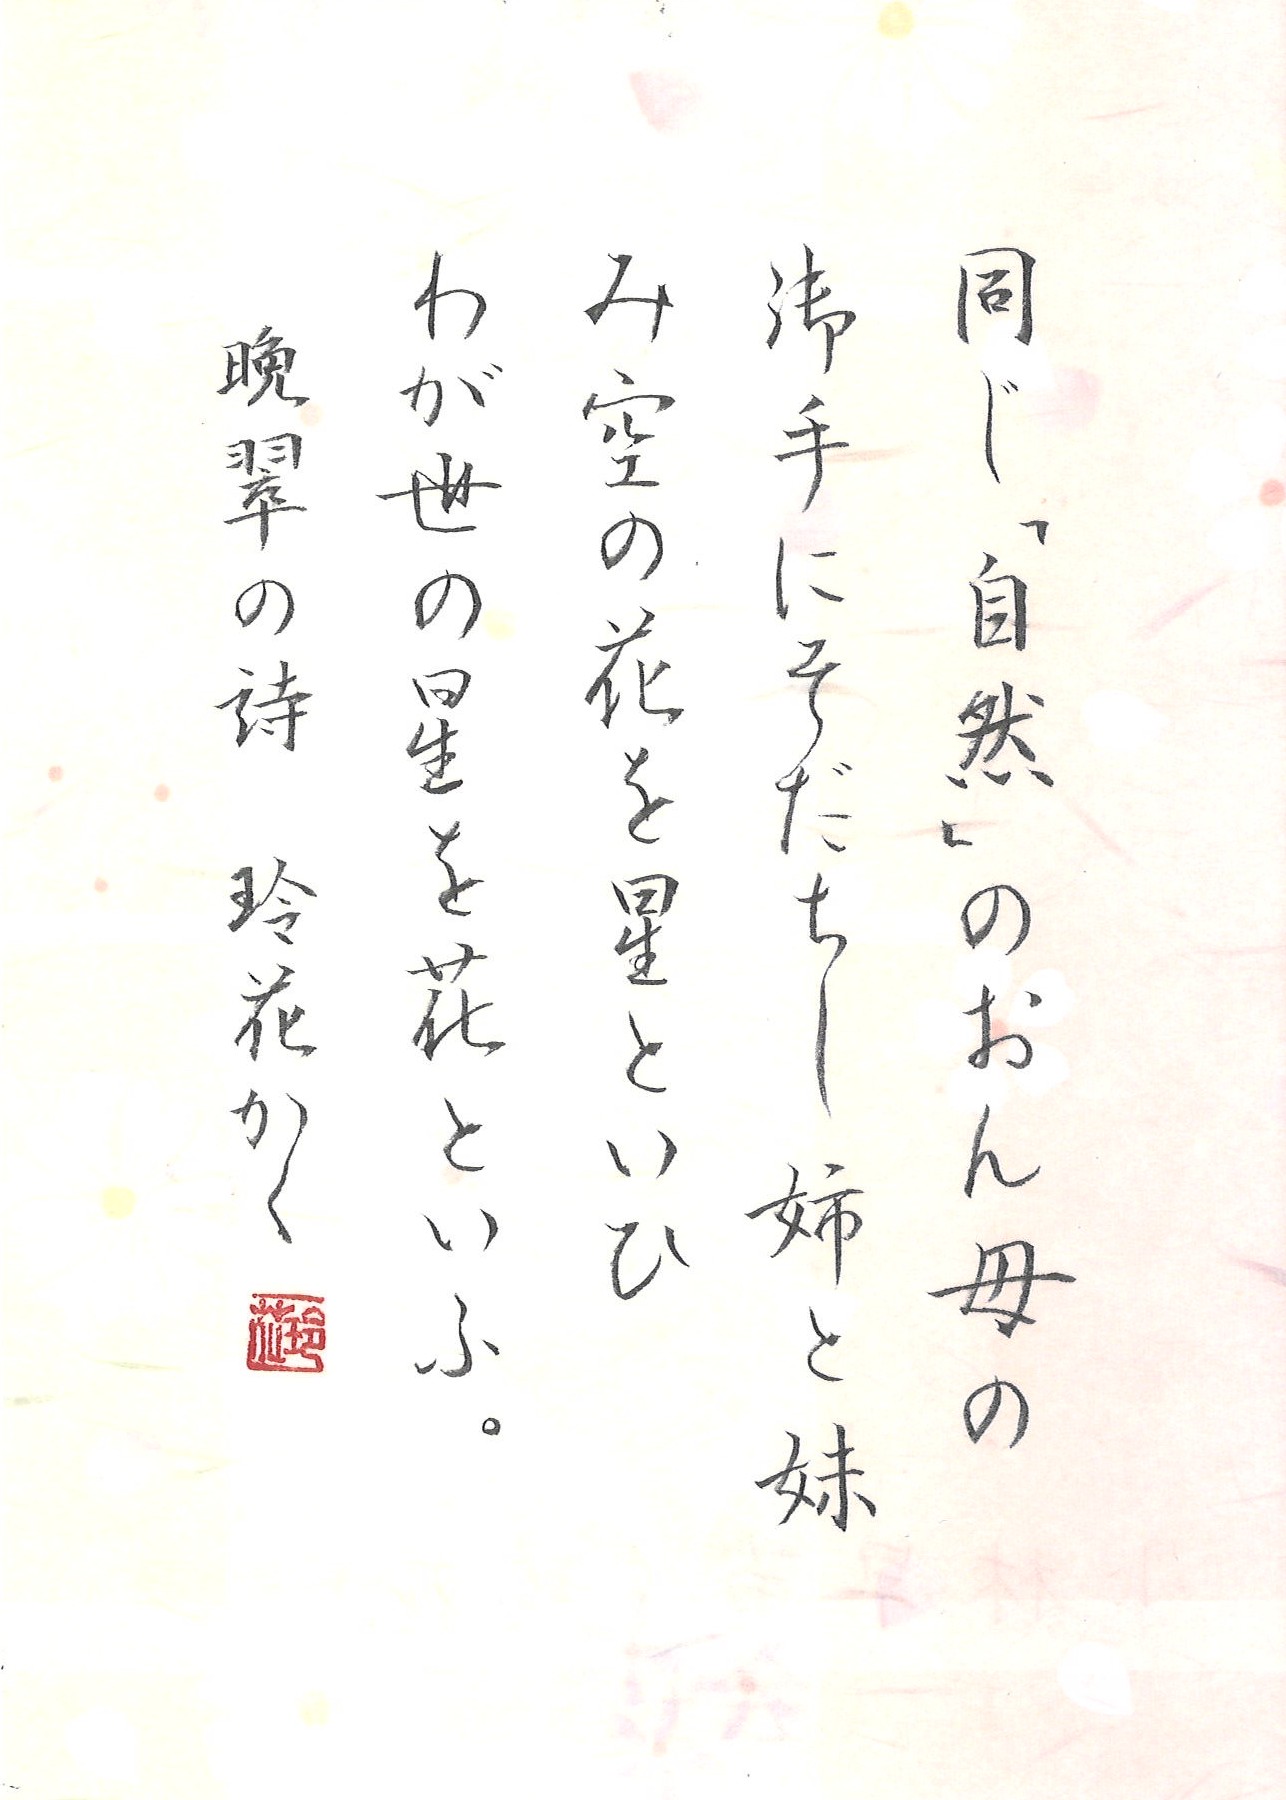 同じ「自然」のおん母の
御手にそだちし 姉と妹
み空の花を星といひ
わが世の星を花といふ。
晩翠の詩 玲花かく
玲花